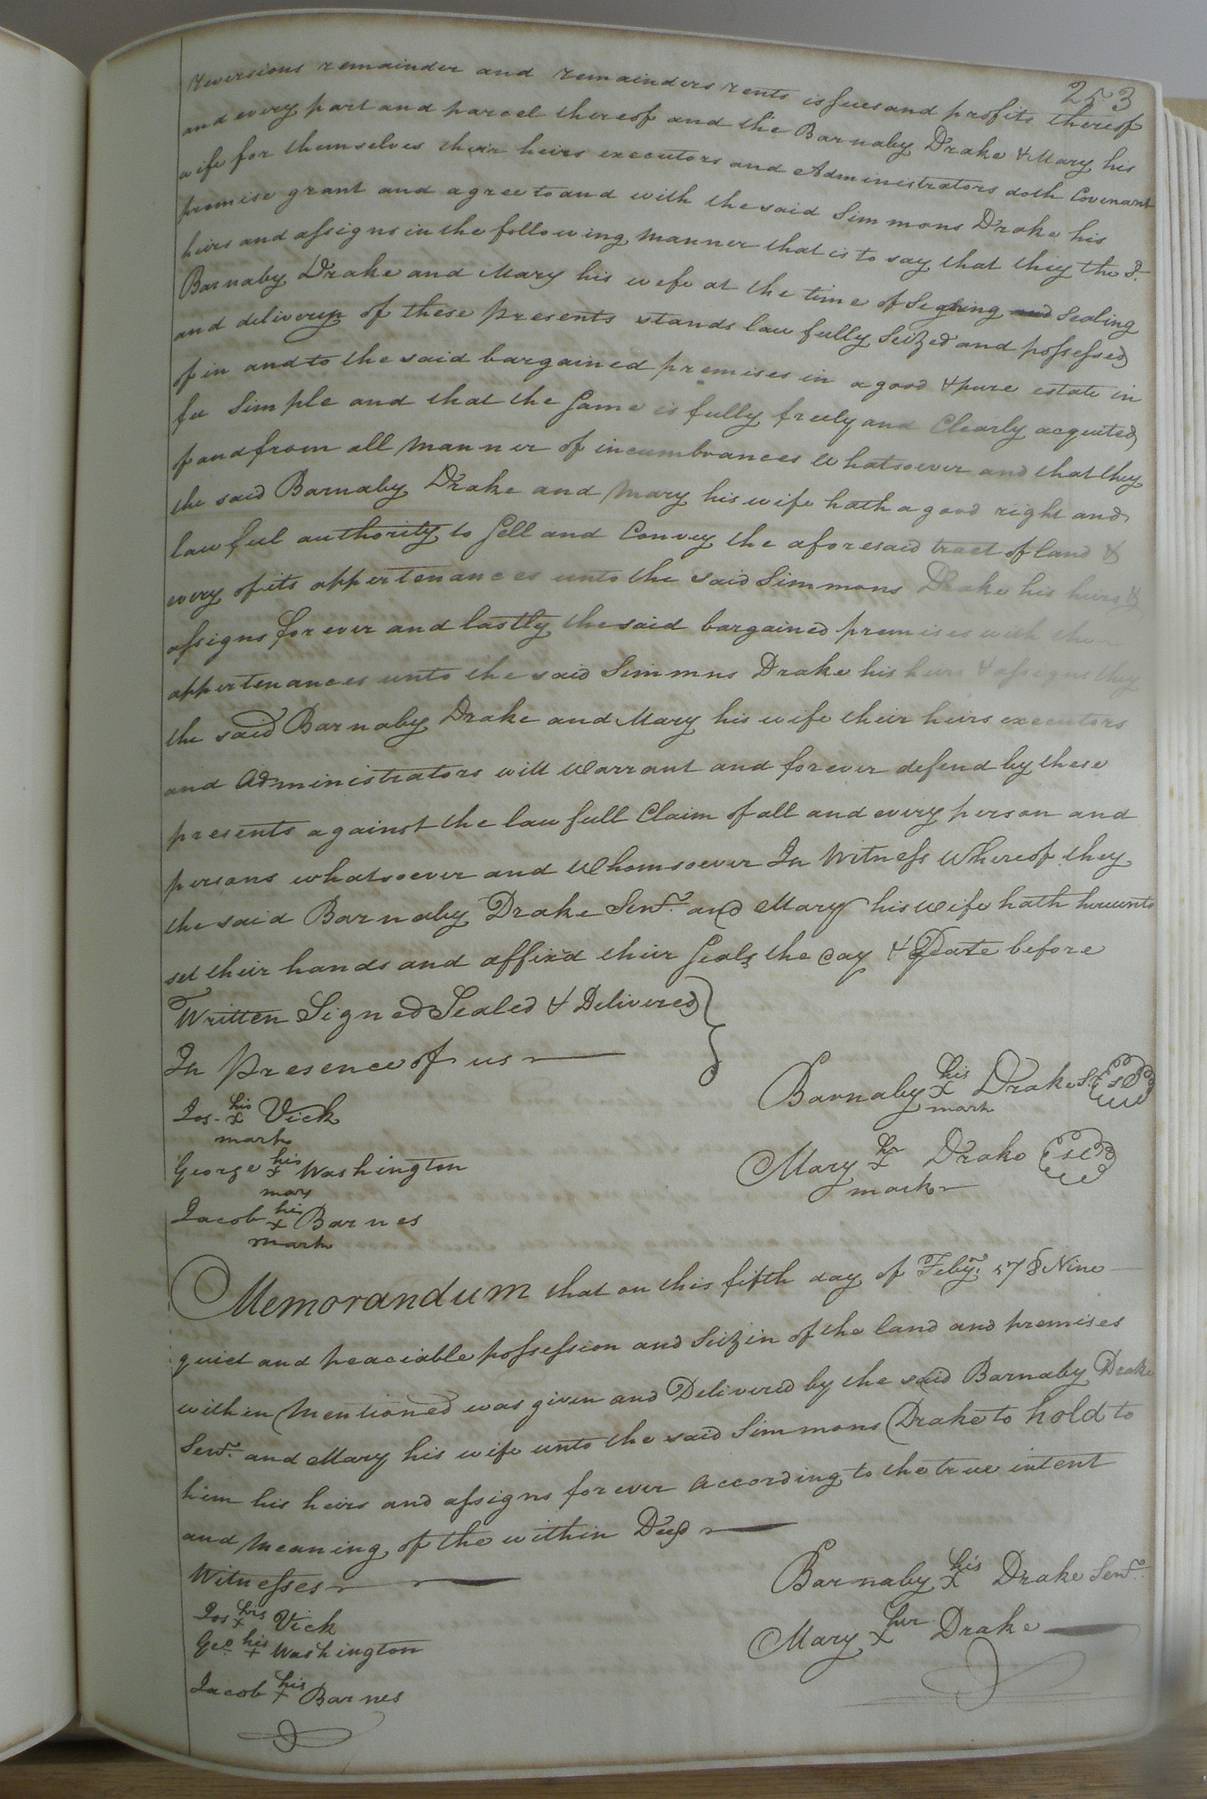 253
reversions remainder and remainders rents issues and profits thereof
and every part and parcel thereof and the Barnaby Drake & Mary his
wife for themselves their heirs executors and Administrators doth Covenant
promise grant and agree to and with the said Simmons Drake his
heirs and assigns in the following manner that is to say that they the S.
Barnaby Drake and Mary his wefe at the time of Signing and Sealing
and delivery of these presents stands lawfully Seized and possessed
of in and to the said bargained premises in a good & pure estate in
fee Simple and that the Same is fully freely and Clearly acquited
of and from all manner of incumbrances whatsoever and that they
the said Barnaby Drake and Mary his wife hath a good right and
lawful authority to Sell and Convey the aforesaid tract of land &
every of its appertenances unto the said Simmons Drake his heirs &
assigns for ever and lastly the said bargained premises with the
appertenances unto the said Simmns Drake his heirs & assigns they
the said Barnaby Drake and Mary his wife their heirs executors
and Administrators will Warrant and forever defend by these
presents against the lawfull Claim of all and every person and
persons whatsoever and Whomsoever In Witness Whereof they
the said Barnaby Drake Senr. and Mary his Wife hath hereunto
set their hands and affixd their Seals the day & Date before
Written Signed Sealed & Delivered
In presence of us
Barnaby his x mark Drake Sr. Seal
Jos. his x mark Vick
Mary her x mark Drake Seal
George his x mary Washington
Jacob his x mark Barnes
Memorandum that on this fifth day of Feby. 178 Nine
quiet and peaciable possession and Seizin of the land and premises
within Mentioned was given and Delivered by the said Barnaby Drake
Senr. and Mary his wife unto the said Simmons Drake to hold to
him his heirs and assigns forever According to the true intent
and Meaning of the within Deed
Witnesses
Barnaby his x Drake Senr.
Jos his x Vick
Mary her x Drake
Geo his + Washington
Jacob his + Barnes